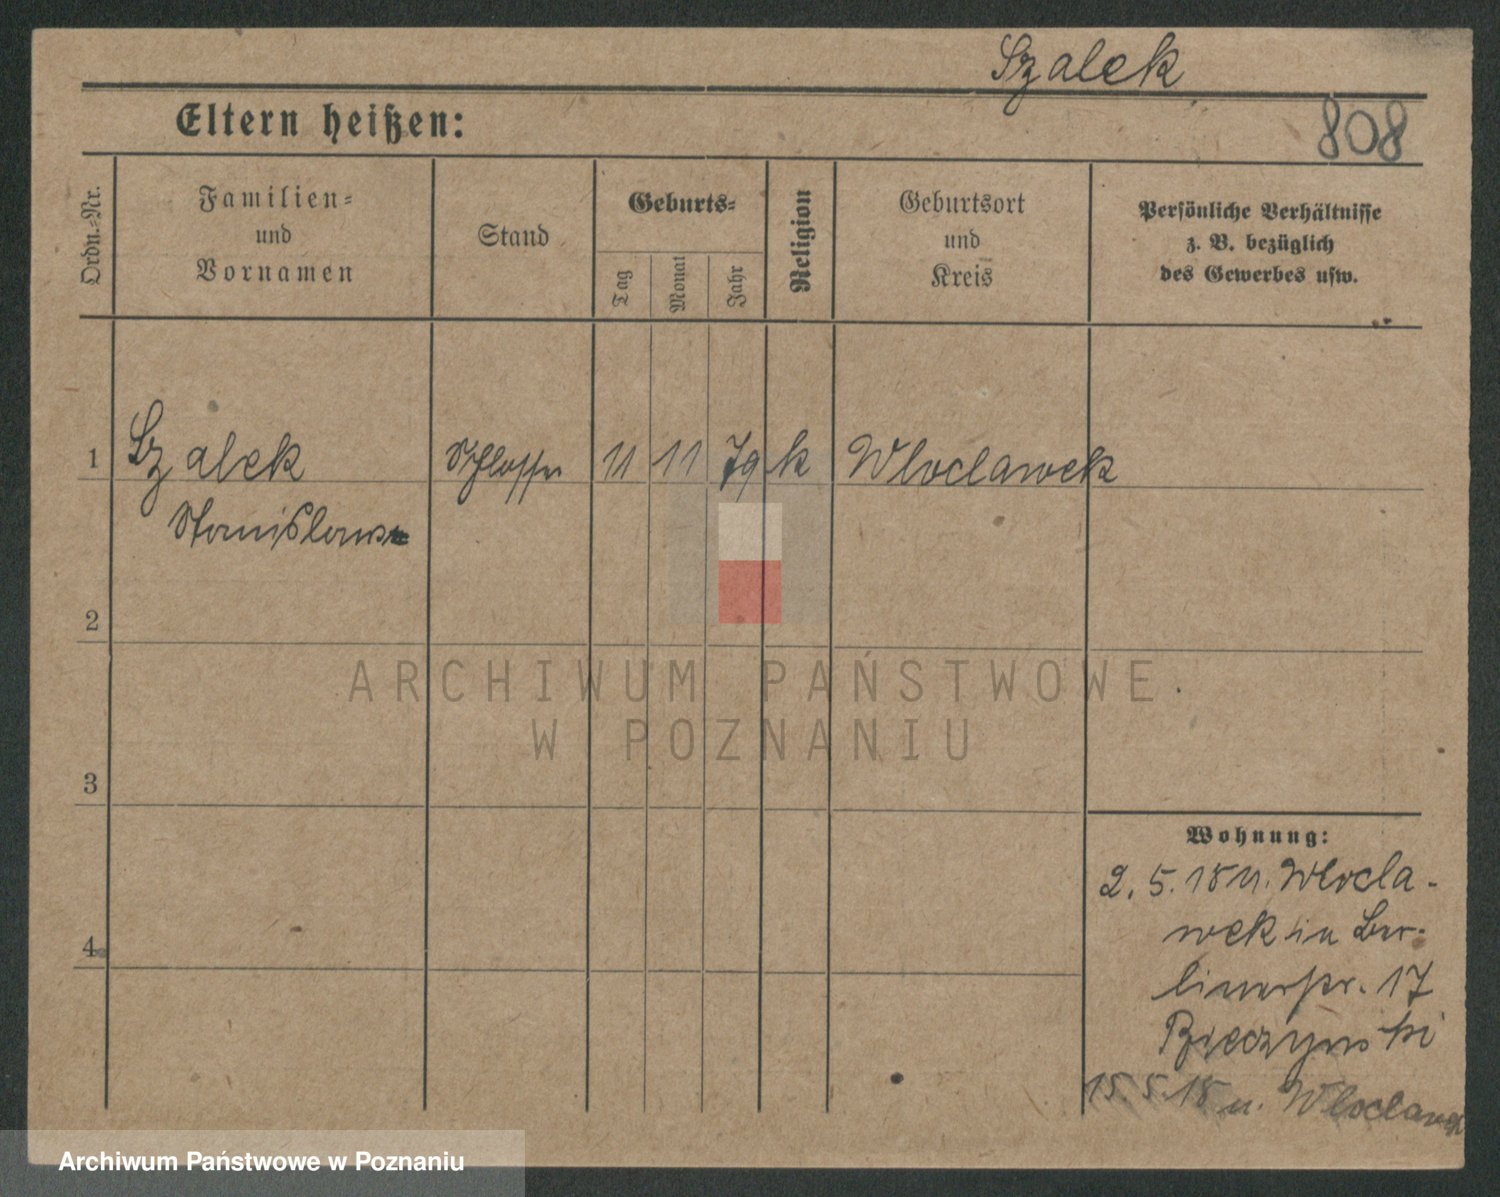 Szalek
Eltern heißen:
808
Ordn.-Nr.
Familien-
und
Vornamen
Stand
Geburts-
Tag
Monat
Jahr
Religion
Geburtsort
und
Kreis
Persönliche Verhältnisse
z. B. bezüglich
des Gewerbes usw.
1 Szalek Schlosser 11 11 79 k Wloclawek
Stanislaus
2
3
4
Wohnung:
2. 5. 18 v. Wlocla-
wek in Ber-
linerstr. 17
15. 5. 18 n. Wloclawek
ARCHIWUM PAŃSTWOWE
W POZNANIU
Archiwum Państwowe w Poznaniu